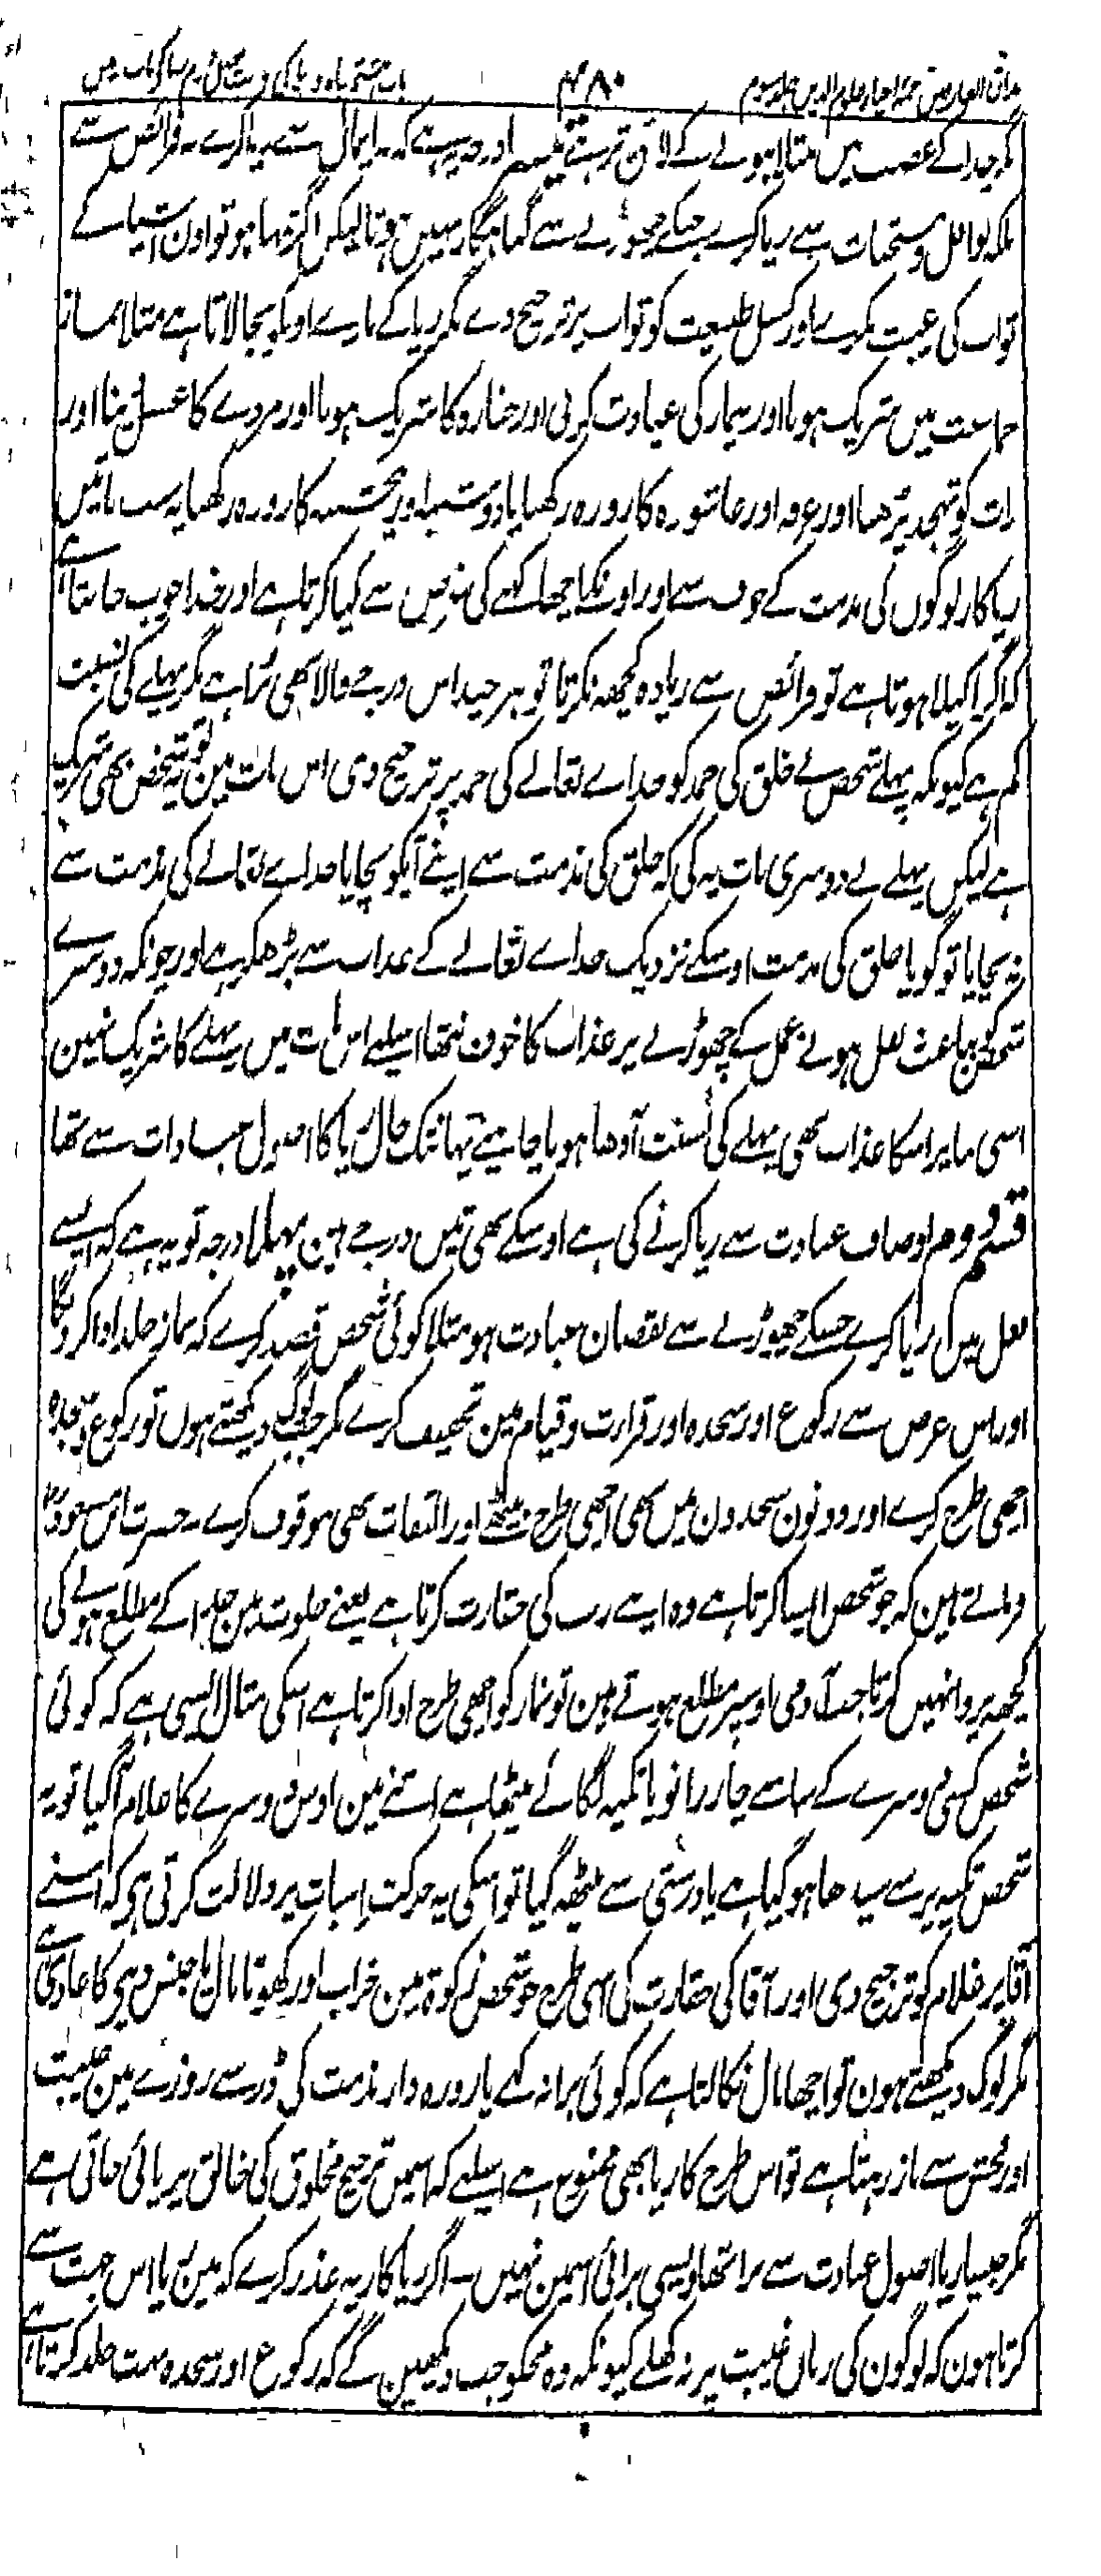 مذاق العارفین ترجمہ احیاء علوم الدین جلد سوم ۴۸۰ باب ہشتم جاہ و ریا کی
مگر خدا کے غضب میں مبتلا ہونے کے لائق تر ہے تیسرا درجہ یہ ہے کہ نہ ایمان سے ریا کرے نہ فرائض سے
بلکہ نوافل و مستحبات سے ریا کرے جسکے چھوڑنے سے گناہگار نہیں ہوتا لیکن اگر تنہا ہو تو اون اشیا کے
ثواب کی رغبت نکرے اور کسل طبیعت کو ثواب پر ترجیح دے مگر ریا کے مارے اونکو بجا لاتا ہے مثلاً نماز
جماعت میں شریک ہونا اور بیمار کی عیادت کرنی اور جنازہ کا شریک ہونا اور مردے کا غسل دینا اور
رات کو تہجد پڑھنا اور عرفہ اور عاشورہ کا روزہ رکھنا یا دوشنبہ اور پنجشنبہ کا روزہ رکھنا یہ سب باتیں
ریاکار لوگوں کی مذمت کے خوف سے اور اونکے اچھا کہنے کی غرض سے کیا کرتا ہے اور خدا خوب جانتا ہے
کہ اگر اکیلا ہوتا ہے تو فرائض سے زیادہ کچھ نکرتا تو ہر چند اس درجے والا بھی برا ہے مگر پہلے کی نسبت
کم ہے کیونکہ پہلے شخص نے خلق کی حمد کو خداے تعالے کی حمد پر ترجیح دی اس بات مین تو یہ شخص بھی شریک
ہے لیکن پہلے نے دوسری بات یہ کی کہ خلق کی مذمت سے اپنے آپکو بچایا خداے تعالے کی مذمت سے
نہ بچایا تو گویا خلق کی مذمت اوسکے نزدیک خداے تعالے کے عذاب سے بڑھکر ہے اور چونکہ دوسرے
شخص کو بباعث نفل ہونے عمل کے چھوڑنے پر عذاب کا خوف نتھا اسلیے اس بات میں پہلے کا شریک نہین
اسی بنا پر اسکا عذاب بھی پہلے کی نسبت آدھا ہونا چاہیے یہانتک حال ریا کا اصول عبادات سے تھا
قسم دوم اوصاف عبادت سے ریا کرنے کی ہے اوسکے بھی تین درجے ہین پہلا درجہ تو یہ ہے کہ ایسے
فعل میں ریا کرے جسکے چھوڑنے سے نقصان عبادت ہو مثلاً کوئی شخص قصد کرے کہ نماز جلد ادا کرونگا
اور اس غرض سے رکوع اور سجدہ اور قرارت و قیام مین تخفیف کرے مگر جب لوگ دیکھتے ہوں تو رکوع و سجدہ
اچھی طرح کرے اور دونون سجدون میں بھی اچھی طرح بیٹھے اور التفات بھی موقوف کرے حضرت ابن مسعودؓ
فرماتے ہین کہ جو شخص ایسا کرتا ہے وہ اپنے رب کی حقارت کرتا ہے یعنے خلوت مین خدا کے مطلع ہونے کی
کچھ پروا نہیں کرتا جب آدمی اوسپر مطلع ہوتے ہین تو نماز کو اچھی طرح ادا کرتا ہے اسکی مثال ایسی ہے کہ کوئی
شخص کسی دوسرے کے سامنے چار زانو یا تکیہ لگائے بیٹھا ہے اتنے مین اوس دوسرے کا غلام آگیا تو یہ
شخص تکیہ پر سے سیدھا ہو گیا ہے یا درستی سے بیٹھ گیا تو اسکی یہ حرکت اسبات پر دلالت کرتی ہی کہ اسنے
آقا پر غلام کو ترجیح دی اور آقا کی حقارت کی اسی طرح جو شخص زکوۃ مین خراب اور کھوٹا مال یا جنس دینے کا عادی ہے
مگر لوگ دیکھتے ہون تو اچھا مال نکالتا ہے کہ کوئی برا نہ کہے یا روزہ دار مذمت کی ڈر سے روزے مین غیبت
اور فحش سے باز رہتا ہے تو اس طرح کا ریا بھی ممنوع ہے اسلیے کہ اسمیں ترجیح مخلوق کی خالق پر پائی جاتی ہے
مگر جیسا ریا اصول عبادت سے برا تھا ویسی برائی اسمین نہیں۔ اگر ریا کار یہ عذر کرے کہ مین ریا اس جہت سے
کرتا ہون کہ لوگون کی زبان غیبت پر نہ کھلے کیونکہ وہ مجکو جب دیکھیں گے کہ رکوع اور سجدہ بہت جلد کرتا ہے